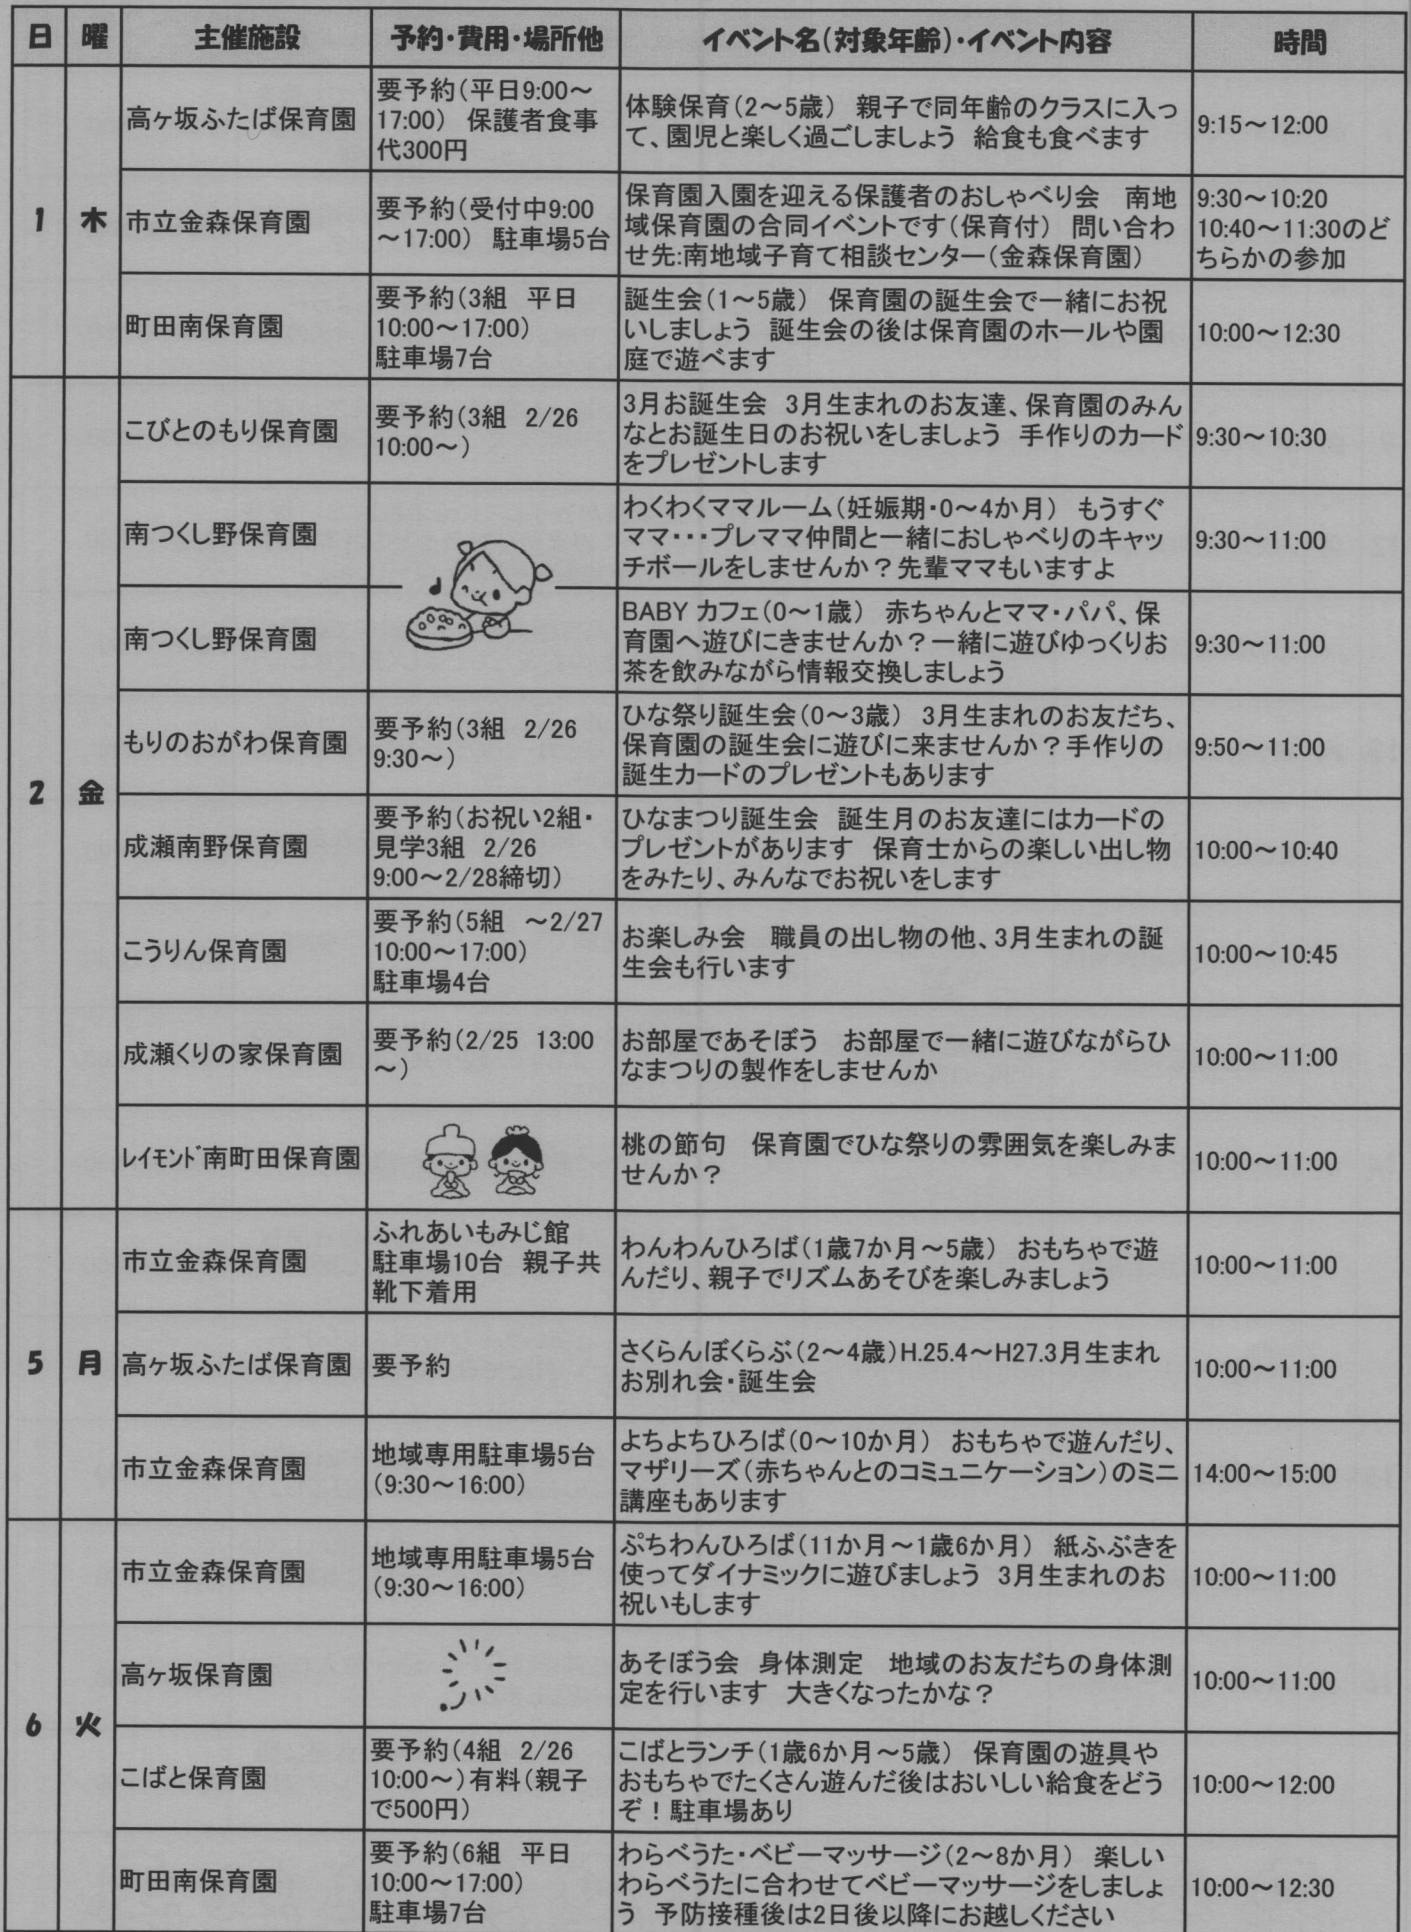 日 曜 主催施設 予約・費用・場所他 イベント名(対象年齢)・イベント内容 時間
1 木
高ヶ坂ふたば保育園
要予約(平日9:00～
17:00)　保護者食事
代300円
体験保育(2～5歳)　親子で同年齢のクラスに入っ
て、園児と楽しく過ごしましょう　給食も食べます
9:15～12:00
市立金森保育園
要予約(受付中9:00
～17:00)　駐車場5台
保育園入園を迎える保護者のおしゃべり会　南地
域保育園の合同イベントです(保育付)　問い合わ
せ先:南地域子育て相談センター(金森保育園)
9:30～10:20
10:40～11:30のど
ちらかの参加
町田南保育園
要予約(3組　平日
10:00～17:00)
駐車場7台
誕生会(1～5歳)　保育園の誕生会で一緒にお祝
いしましょう　誕生会の後は保育園のホールや園
庭で遊べます
10:00～12:30
2 金
こびとのもり保育園
要予約(3組　2/26
10:00～)
3月お誕生会　3月生まれのお友達、保育園のみん
なとお誕生日のお祝いをしましょう　手作りのカード
をプレゼントします
9:30～10:30
南つくし野保育園
わくわくママルーム(妊娠期・0～4か月)　もうすぐ
ママ・・・プレママ仲間と一緒におしゃべりのキャッ
チボールをしませんか？先輩ママもいますよ
9:30～11:00
南つくし野保育園
BABY カフェ(0～1歳)　赤ちゃんとママ・パパ、保
育園へ遊びにきませんか？一緒に遊びゆっくりお
茶を飲みながら情報交換しましょう
9:30～11:00
もりのおがわ保育園
要予約(3組　2/26
9:30～)
ひな祭り誕生会(0～3歳)　3月生まれのお友だち、
保育園の誕生会に遊びに来ませんか？手作りの
誕生カードのプレゼントもあります
9:50～11:00
成瀬南野保育園
要予約(お祝い2組・
見学3組　2/26
9:00～2/28締切)
ひなまつり誕生会　誕生月のお友達にはカードの
プレゼントがあります　保育士からの楽しい出し物
をみたり、みんなでお祝いをします
10:00～10:40
こうりん保育園
要予約(5組　～2/27
10:00～17:00)
駐車場4台
お楽しみ会　職員の出し物の他、3月生まれの誕
生会も行います
10:00～10:45
成瀬くりの家保育園
要予約(2/25　13:00
～)
お部屋であそぼう　お部屋で一緒に遊びながらひ
なまつりの製作をしませんか
10:00～11:00
ﾚｲﾓﾝﾄﾞ南町田保育園
桃の節句　保育園でひな祭りの雰囲気を楽しみま
せんか？
10:00～11:00
5 月
市立金森保育園
ふれあいもみじ館
駐車場10台　親子共
靴下着用
わんわんひろば(1歳7か月～5歳)　おもちゃで遊
んだり、親子でリズムあそびを楽しみましょう
10:00～11:00
高ヶ坂ふたば保育園
要予約
さくらんぼくらぶ(2～4歳)H.25.4～H27.3月生まれ
お別れ会・誕生会
10:00～11:00
市立金森保育園
地域専用駐車場5台
(9:30～16:00)
よちよちひろば(0～10か月)　おもちゃで遊んだり、
マザリーズ(赤ちゃんとのコミュニケーション)のミニ
講座もあります
14:00～15:00
6 火
市立金森保育園
地域専用駐車場5台
(9:30～16:00)
ぷちわんひろば(11か月～1歳6か月)　紙ふぶきを
使ってダイナミックに遊びましょう　3月生まれのお
祝いもします
10:00～11:00
高ヶ坂保育園
あそぼう会　身体測定　地域のお友だちの身体測
定を行います　大きくなったかな？
10:00～11:00
こばと保育園
要予約(4組　2/26
10:00～)有料(親子
で500円)
こばとランチ(1歳6か月～5歳)　保育園の遊具や
おもちゃでたくさん遊んだ後はおいしい給食をどう
ぞ！駐車場あり
10:00～12:00
町田南保育園
要予約(6組　平日
10:00～17:00)
駐車場7台
わらべうた・ベビーマッサージ(2～8か月)　楽しい
わらべうたに合わせてベビーマッサージをしましょ
う　予防接種後は2日後以降にお越しください
10:00～12:30